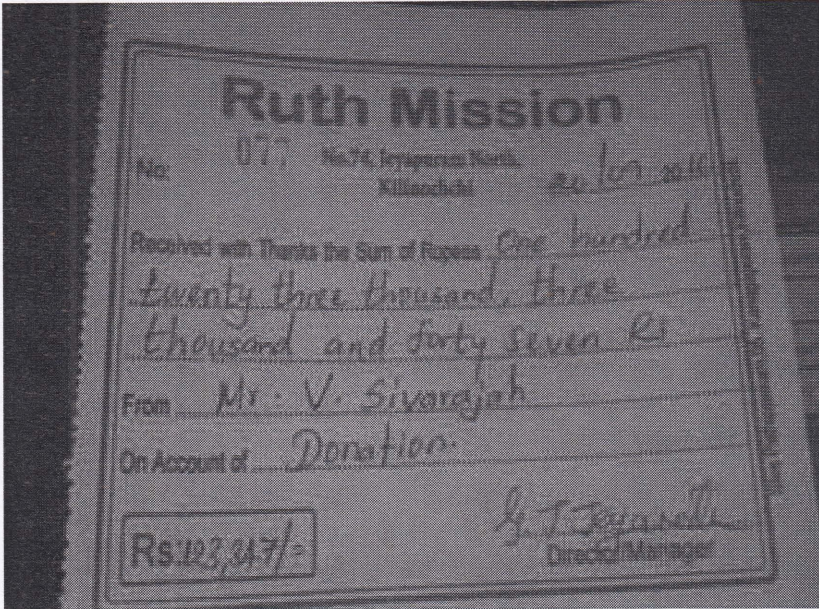 Ruth Mission
No: 077 No.74, Jeyapuram North,
Killinochchi
20/07 2016
Received with Thanks the Sum of Rupees One hundred
twenty three thousand, three
thousand and forty seven Rs
From Mr. V. Sivarajah
On Account of Donation.
Rs: 123,347/=
Director/Manager